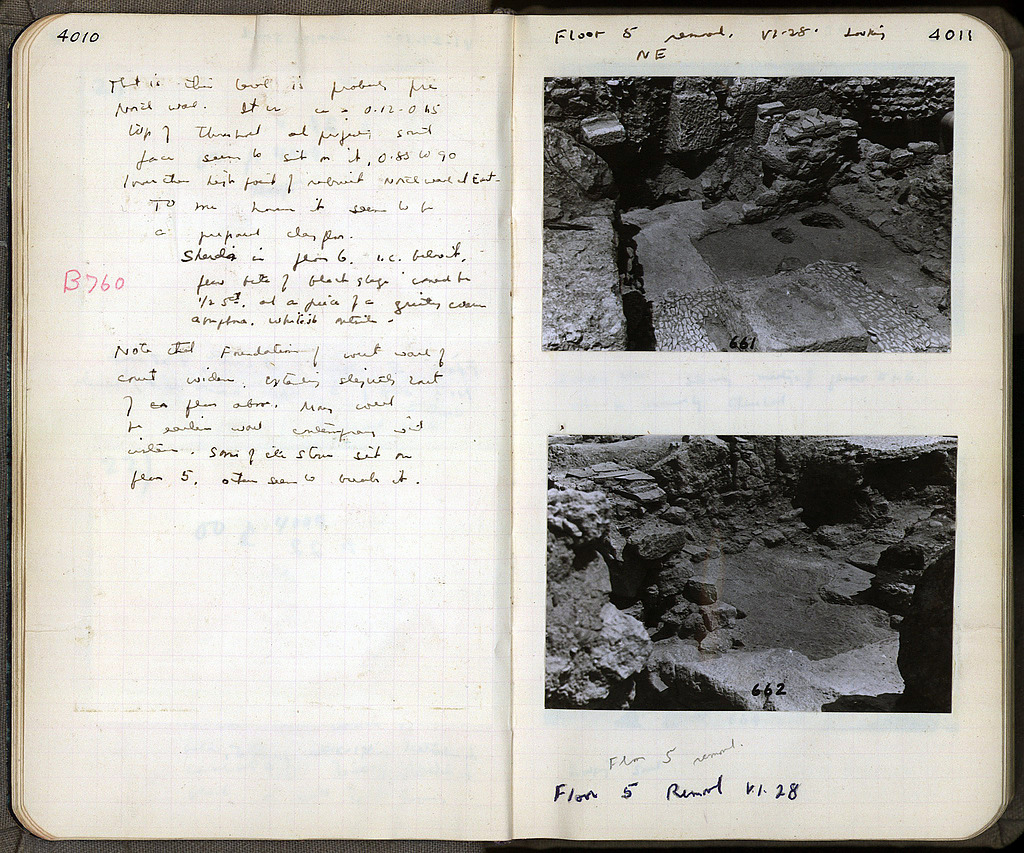 4010
That is this level is probably pre
North wall. It is 0.12-0.15
top of threshold and projecting south
face seems to sit on it, 0.85 to 90
lower than high point of rebuilt North wall at East-
To me however it seems to be
a prepared clay floor.
Sherds in floor 6. i.e. beneath.
B760
few bits of black glaze could be
1/2 5th. and a piece of a gritty coarse
amphora. whitish outside.
Note that Foundation of west wall of
court widen, extending slightly East
of as floor above. May well
be earlier wall contemporary with
cistern. Some of its stones sit on
floor 5, others seem to break it.
Floor 5 removed. VI-28. Looking
NE
4011
661
662
Floor 5 removed.
Floor 5 Removed VI-28